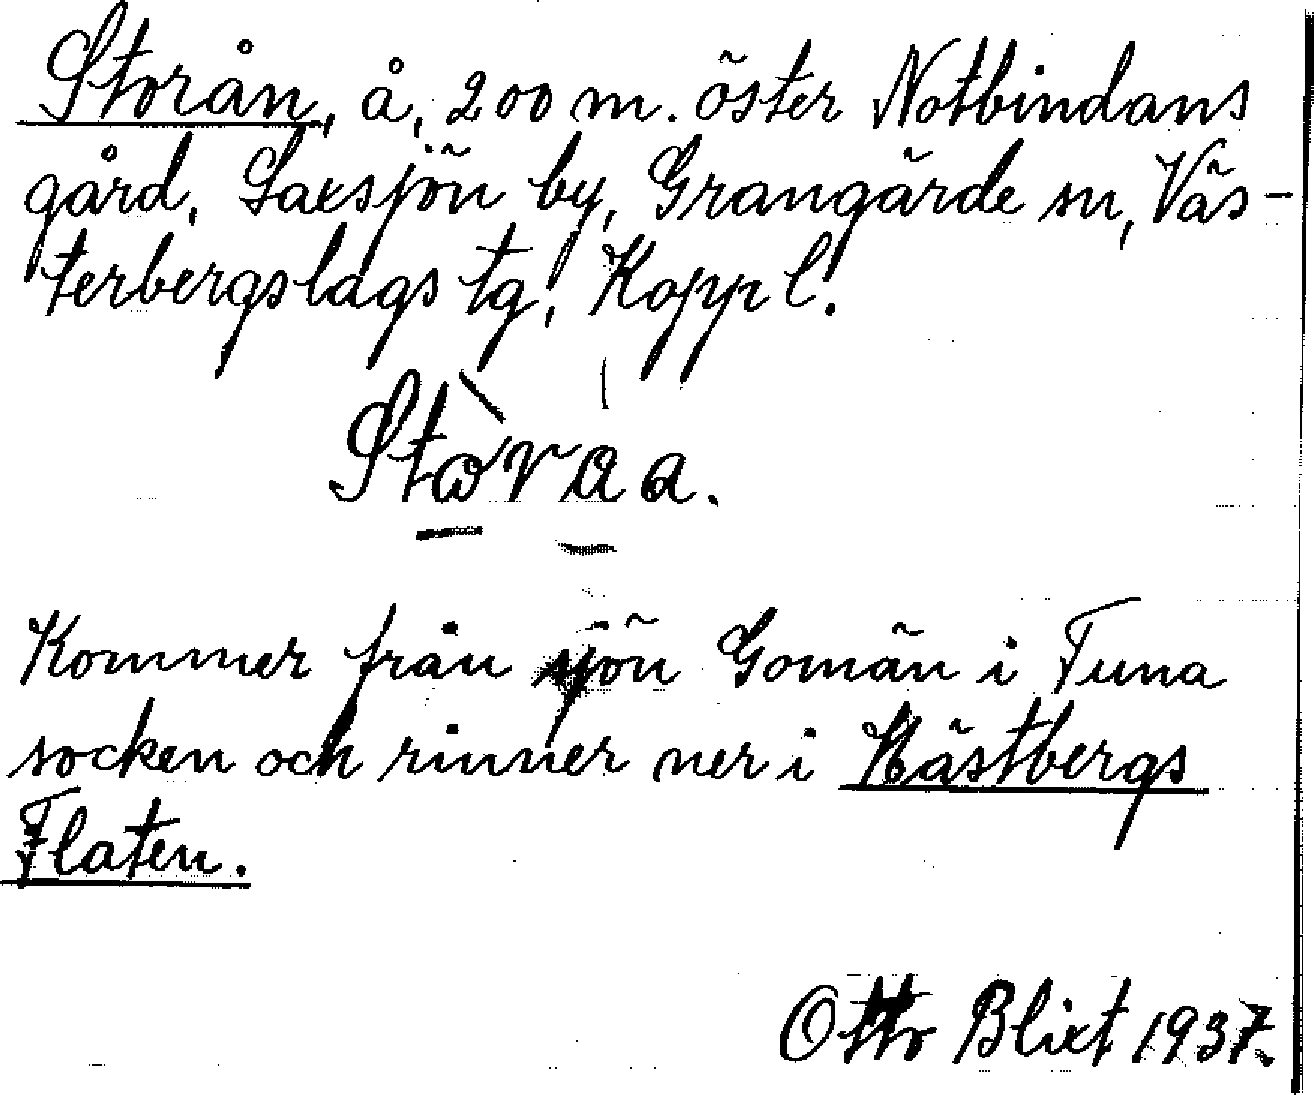 Storån, å, 200 m. öster Notbindans
gård, Saxsjön by, Grangärde sn, Väs-
terbergslags tg, Kopp l.
Stòraa.
Kommer från sjön Gomän i Tuna
socken och rinner ner i Hästbergs
Flaten.
Otto Blixt 1937.